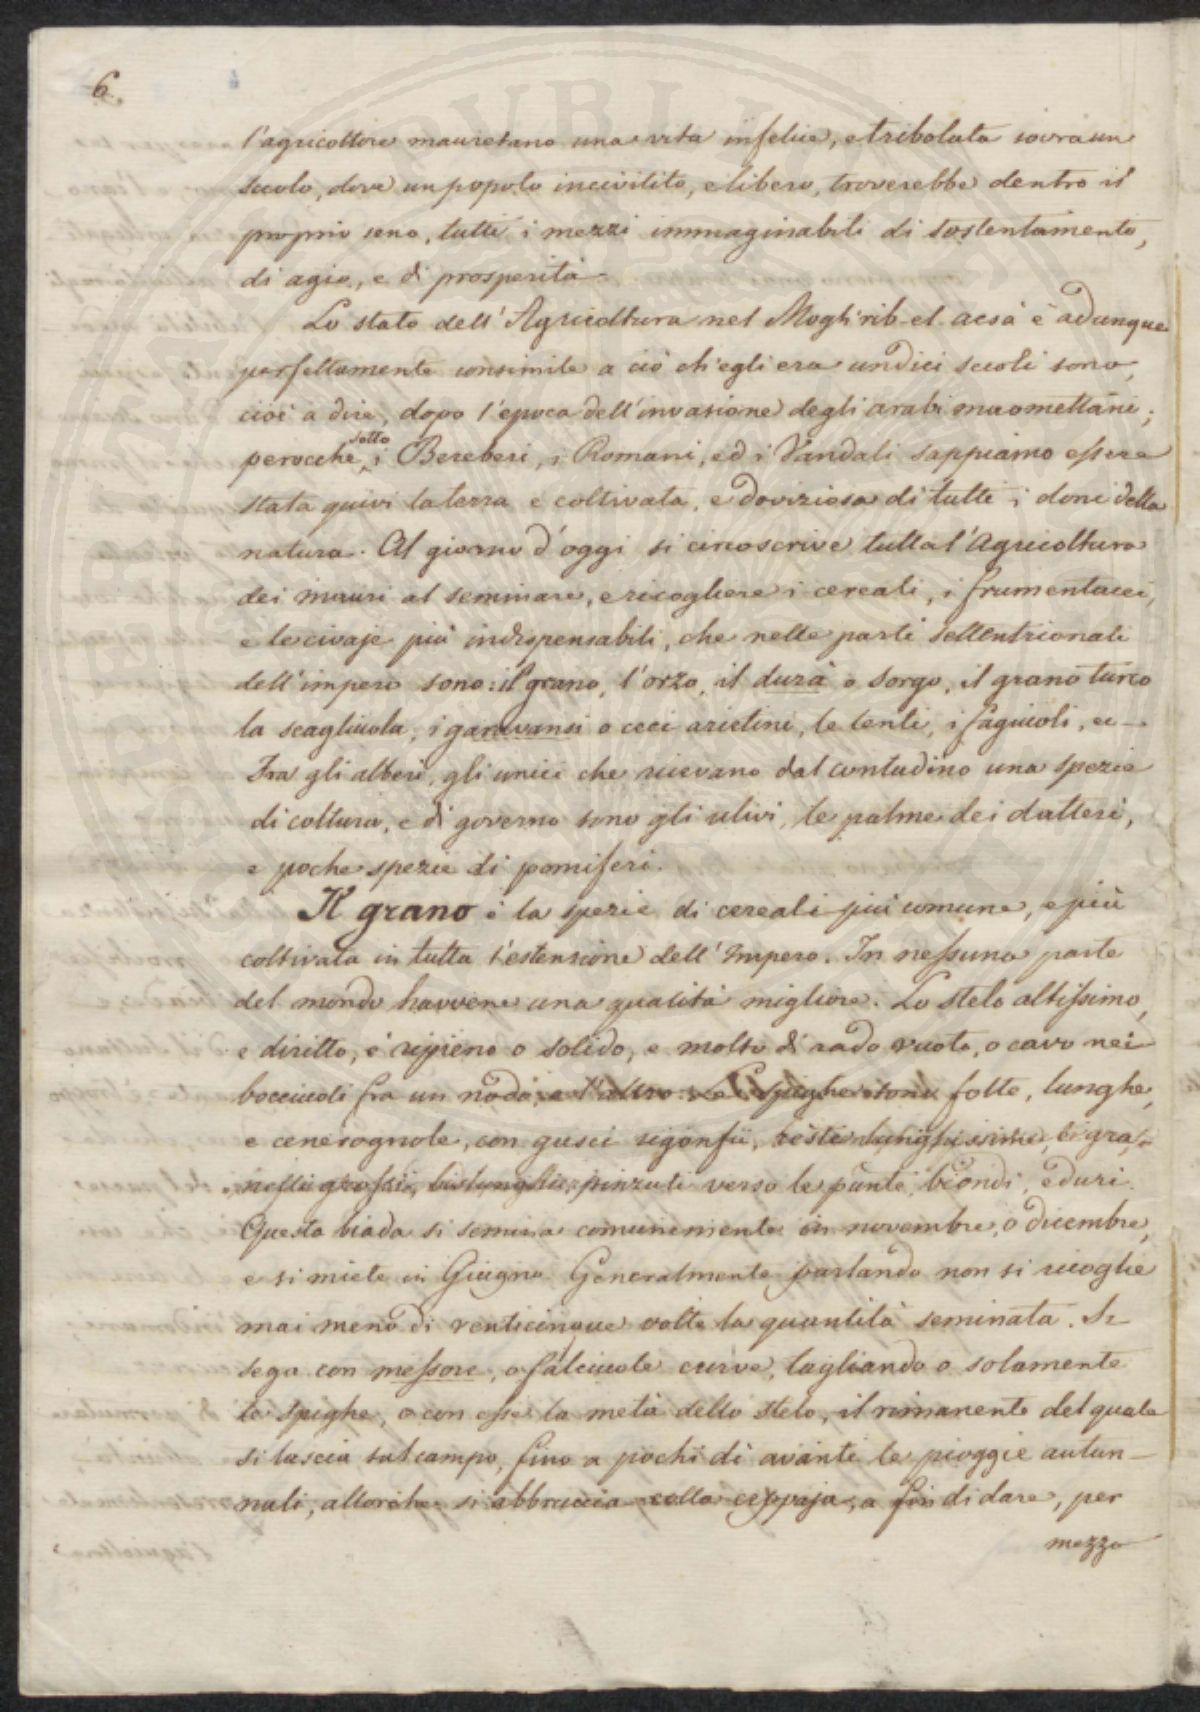 6.
l'agricoltore mauretano una vita infelice, e tribolata sovra un
suolo, dove un popolo incivilito, e libero, troverebbe dentro il
proprio seno, tutti i mezzi immaginabili di sostentamento,
di agio, e di prosperità.
Lo stato dell'Agricoltura nel Moghrib-el-acsà è adunque
perfettamente consimile a ciò ch'egli era undici secoli sono,
cioè a dire, dopo l'epoca dell'invasione degli arabi maomettani;
perocchè sotto i Bereberi, i Romani, ed i Vandali sappiamo essere
stata quivi la terra e coltivata, e doviziosa di tutti i doni della
natura. Al giorno d'oggi si circoscrive tutta l'Agricoltura
dei mauri al seminare, e ricogliere i cereali, i frumentacei,
e le civaje più indispensabili, che nelle parti settentrionali
dell'impero sono: il grano, l'orzo, il durà o sorgo, il grano turco
la scagliuola, i garavansi o ceci arietini, le lenti, i fagiuoli, ec—
Fra gli alberi, gli unici che ricevano dal contadino una spezie
di coltura, e di governo sono gli ulivi, le palme dei datteri,
e poche spezie di pomiferi.
Il grano è la spezie di cereali più comune, e più
coltivata in tutta l'estensione dell'Impero. In nessuna parte
del mondo havvene una qualità migliore. Lo stelo altissimo,
e diritto, è ripieno o solido, e molto di rado vuoto, o cavo nei
bocciuoli fra un nodo, e l'altro. Le spighe sono folte, lunghe,
e cenerognole, con gusci rigonfii, reste lunghissime, ei gra-
nelli grossi, bislunghi, pinzuti verso le punte, biondi, e duri.
Questa biada si semina comunemente in novembre, o dicembre,
e si miete in Giugno. Generalmente parlando non si ricoglie
mai meno di venticinque volte la quantità seminata. Si
sega con messore, o falciuole curve, tagliando o solamente
le spighe, o con esse la metà dello stelo, il rimanente del quale
si lascia sul campo, fino a pochi dì avanti le pioggie autun-
nali, allorchè si abbruccia colla ceppaja, a fin di dare, per
mezzo